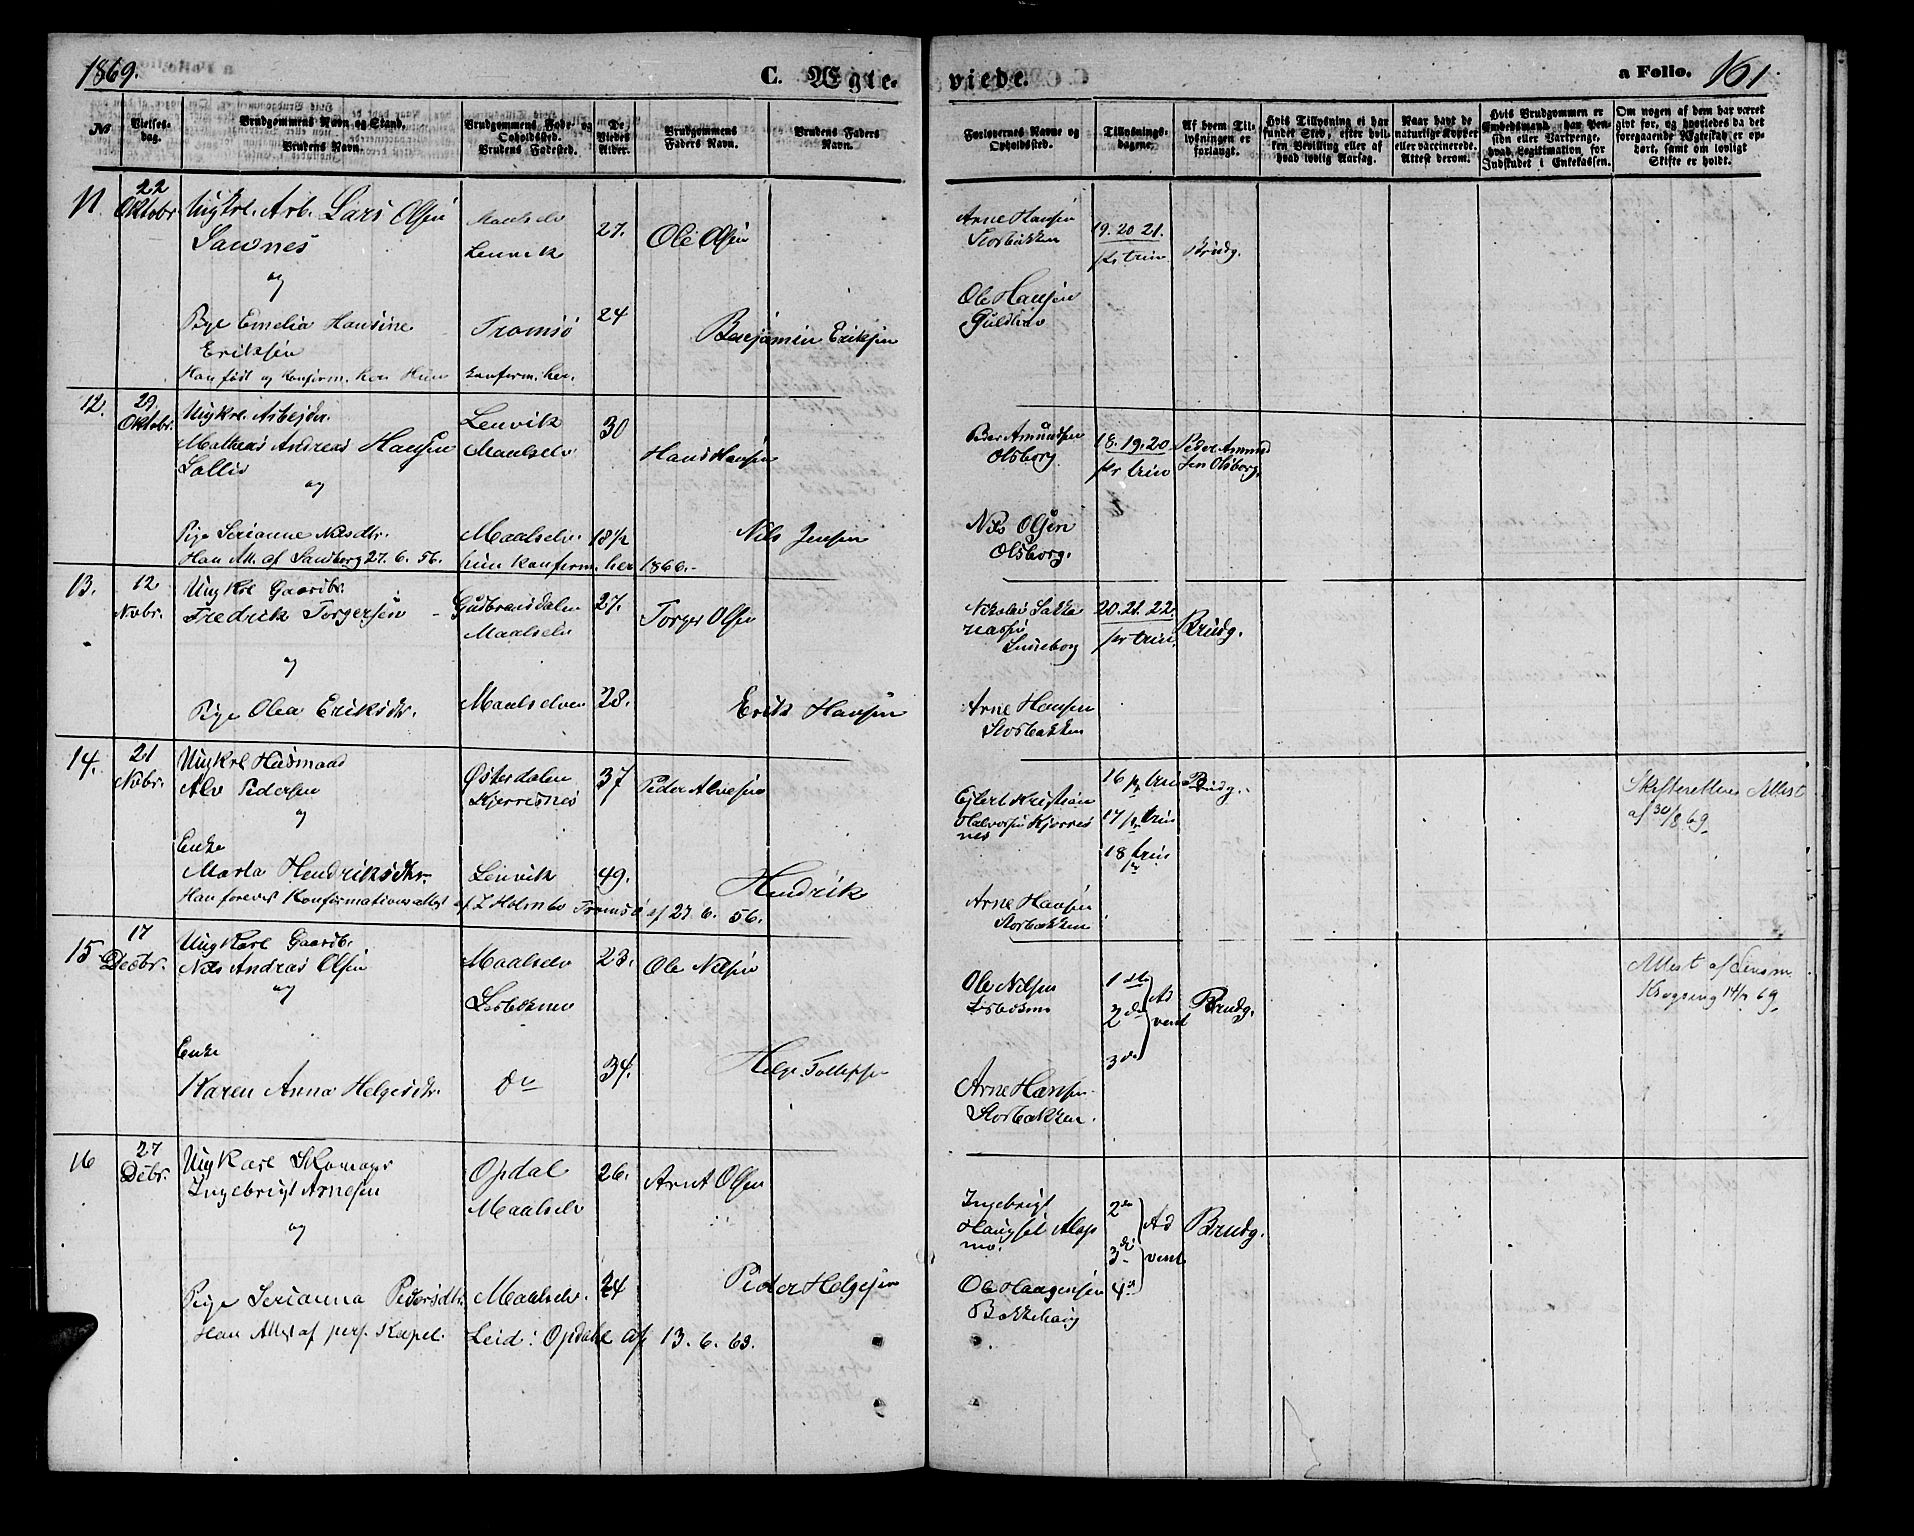 1869.
C. Ægte-
viede.
a Folio. 161.
No
Vielses-
dag.
Brudgommens Navn og Stand.
Brudens Navn.
Brudgommens Føde- og
Opholdssted.
Brudens Fødested.
De
Viedes
Alder.
Brudgommens
Faders Navn.
Brudens Faders
Navn.
Forlovernes Navne og
Opholdssted.
Tillysnings-
dagene.
Af hvem Til-
lysningen er
forlangt.
Hvis Tillysning ei har
fundet Sted, efter hvil-
ken Bevilling eller af
hvad lovlig Aarsag.
Naar havt de
naturlige Kopper
eller vaccinerede.
Attest derom.
Hvis Brudgommen er
Embedsmand, har Pen-
sion eller Vartpenge,
hvad Legitimation, for
Indskudet i Enkekassen.
Om nogen af dem har været
gift før, og hvorledes da det
foregaaende Ægteskab er op-
hørt, samt om lovligt
Skifte er holdt.
11.
22
Oktobr
Ungkrl. Arb. Lars Olsen
og
Pige Emelia Hansine
Eriksen
Han født og konfirm. hos Hun konfirm. her.
Maalselv
Lenvik
Tromsö
27.
24
Ole Olsen
Benjamin Eriksen
Arne Hansen
Storbakken
Ole Hansen
Guldhav
19. 20 21.
pr trin
Brudg.
12.
29.
Oktobr.
Ungkrl. Arbejder
Mathias Andreas Hansen
og
Pige Serianne Nilsdtr.
Han Att. af Sandberg 27. 6. 56. hun konfirm. her 1866.-
Lenvik
Maalselv
Maalselv.
30
18½
Hans Hansen
Nils Jensen
Peder Amundsen
Olsborg
Nils Olsen
Olsborg.
18. 19. 20
pr trin
Peder Amund
sen Olsborg.
13.
12
Nvbr.
Ungkrl Gaardbr.
Fredrik Torgersen
og
Pige Olea Eriksdtr.
Gudbransdalen
Maalselv
Maalselven
27.
28.
Torger Olsen
Erik Hansen
Nikolai Sakka
riassen
Luneborg
Arne Hansen
Storbakken
20. 21. 22.
pr trin.
Brudg.
14.
21
Nvbr.
Ungkrl Husmand
Alv Pedersen
og
Enke
Marta Hendriksdtr.
Han forevist Konfirmationsattest af L Holmbo Tromsö af 27. 6. 56.
Østerdalen
Kjerresnes
Lenvik
37
49.
Peder Alvesen
Hendrik
Ejlert Kristian
Halvorsen Kjerres
nes
Arne Hansen
Storbakken
16 pr trin
17 pr trin
18 pr trin
Brudg.
Skifterettens Attest
af 30/8 69.
15
17
Decbr.
Ungkarl Gaardb.
Nils Andreas Olsen
og
Enke
Karen Anna Helgesdtr.
Maalselv
do
23.
34.
Ole Nilsen
Helge Tollefsen
Ole Nilsen
Arne Hansen
Storbakken.
1ste
2den
3die
Ad
vent
Brudg.
Attest af Lensm.
16
27
Debr.
Ungkarl Skomager
Ingebrigt Arnesen
og
Pige Serianna Pedersdtr.
Han Attest af pers. Kapel. Leid: Opdahl af 13. 6. 63.
Opdal
Maalselv
Maalselv.
26.
24
Arnt Olsen
Peder Helgesen
Ingebrigt
Ole Haagensen
Bakkehaug
2den
3die
4de
Ad
vent
Brudg.